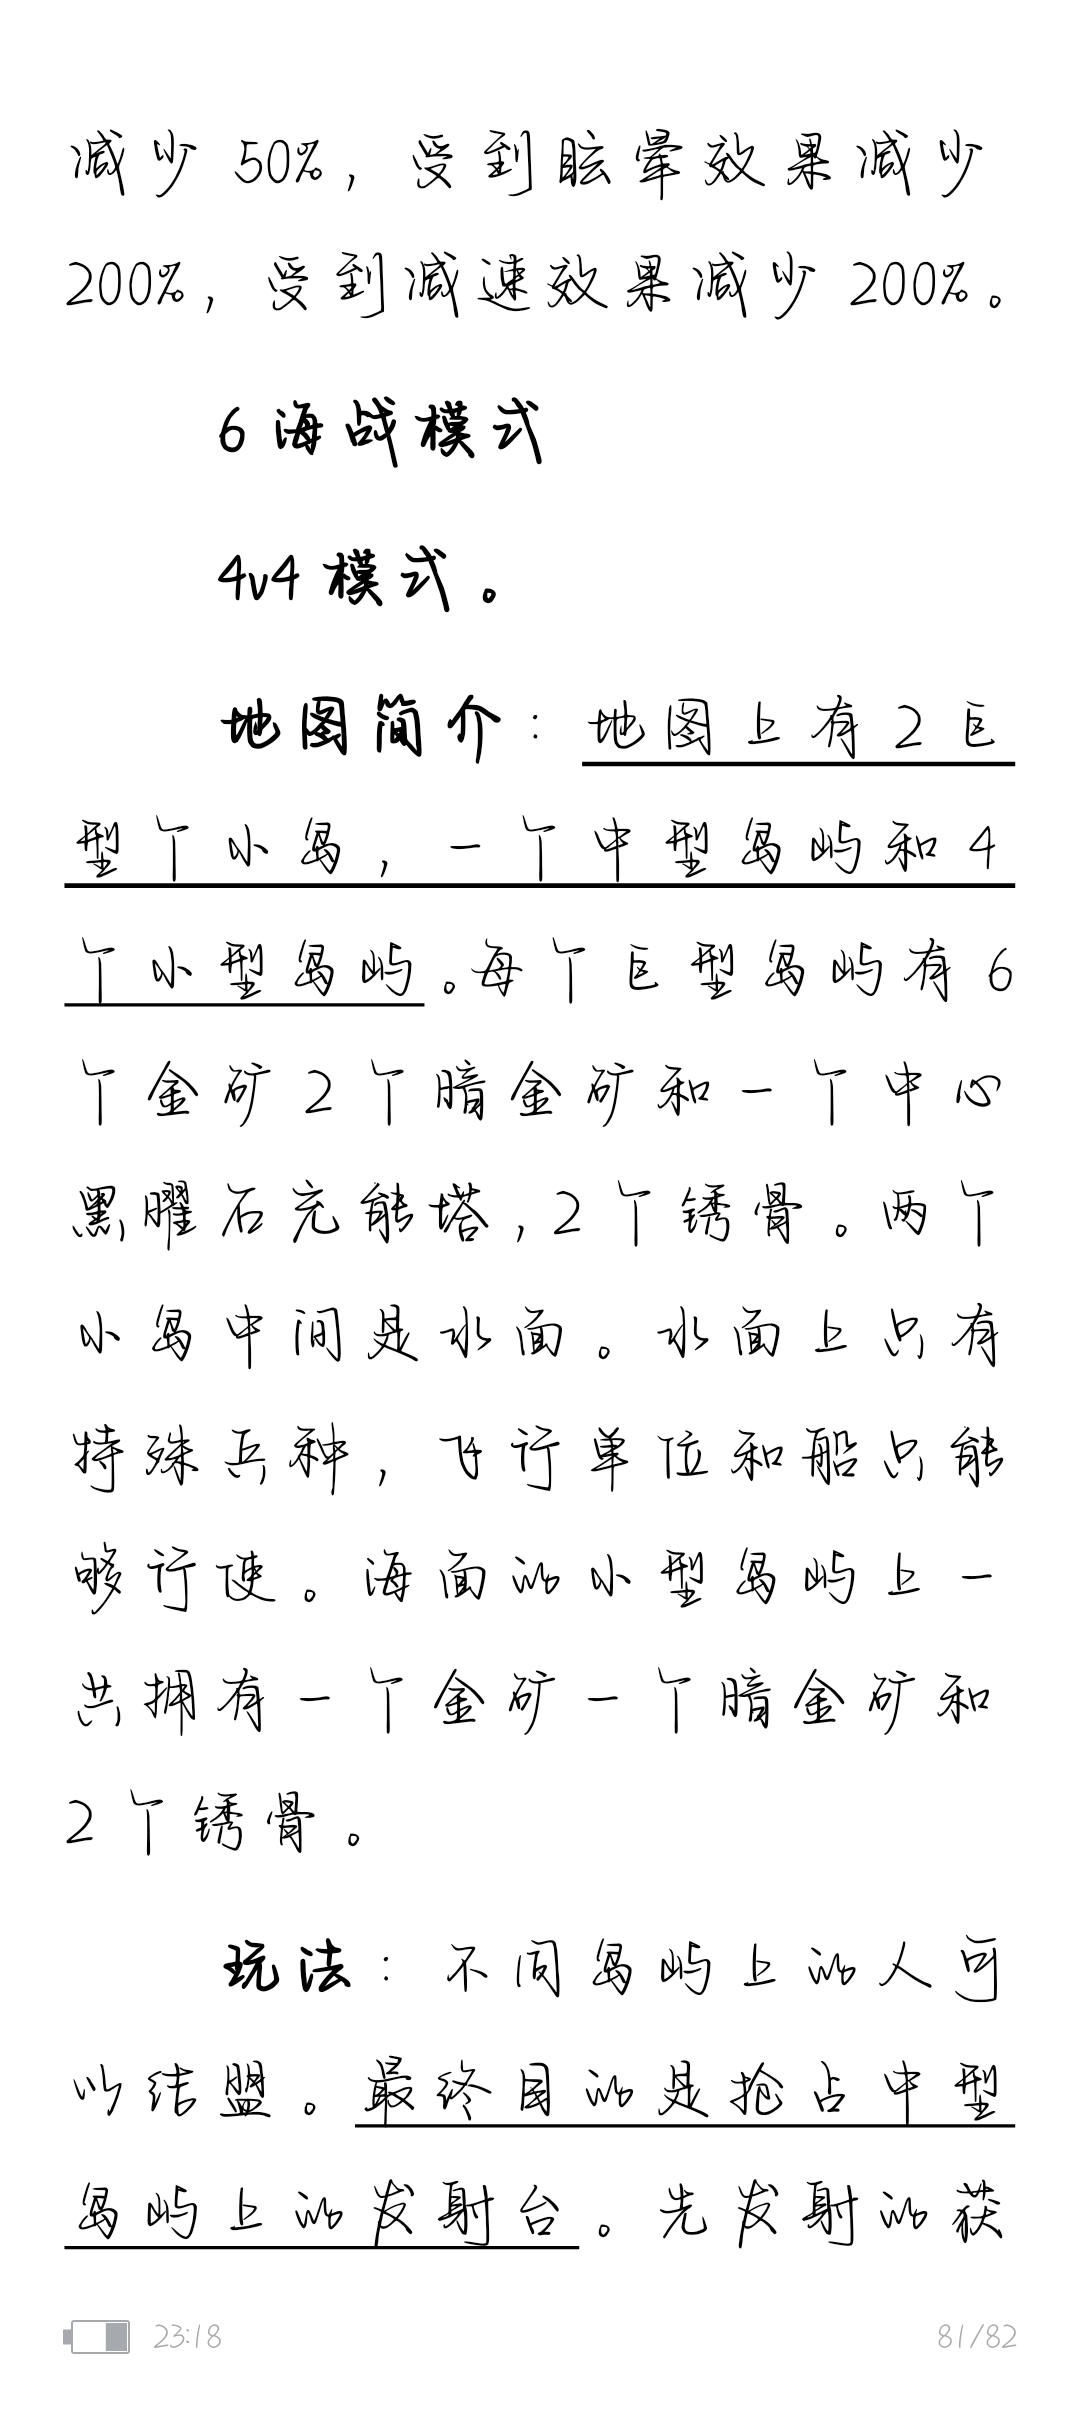 减少 50%, 受到眩晕效果减少
200%, 受到减速效果减少 200%。
6 海战模式
4v4 模式。
地图简介: 地图上有 2 巨
型个小岛, 一个中型岛屿和 4
个小型岛屿。每个巨型岛屿有 6
个金矿 2 个暗金矿和一个中心
黑曜石充能塔, 2 个锈骨。两个
小岛中间是水面。水面上只有
特殊兵种, 飞行单位和船只能
够行使。海面的小型岛屿上一
共拥有一个金矿一个暗金矿和
2 个锈骨。
玩法: 不同岛屿上的人可
以结盟。最终目的是抢占中型
岛屿上的发射台。先发射的获
23:18 81/82